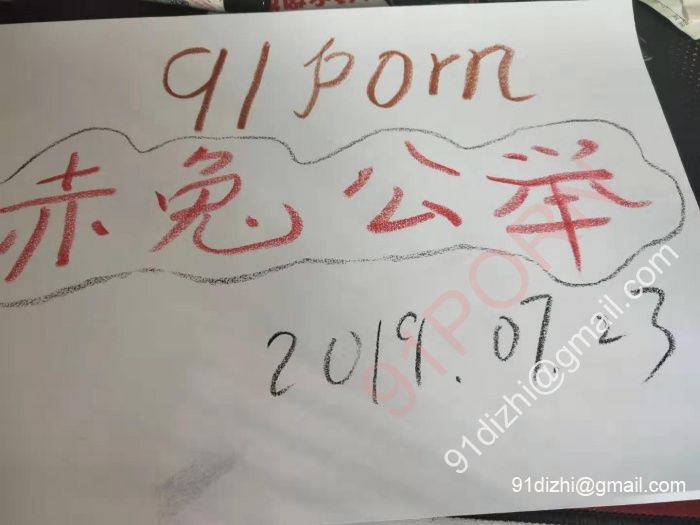 91porn
赤兔公举
2019.07.23
91PORN
91dizhi@gmail.com
91dizhi@gmail.com